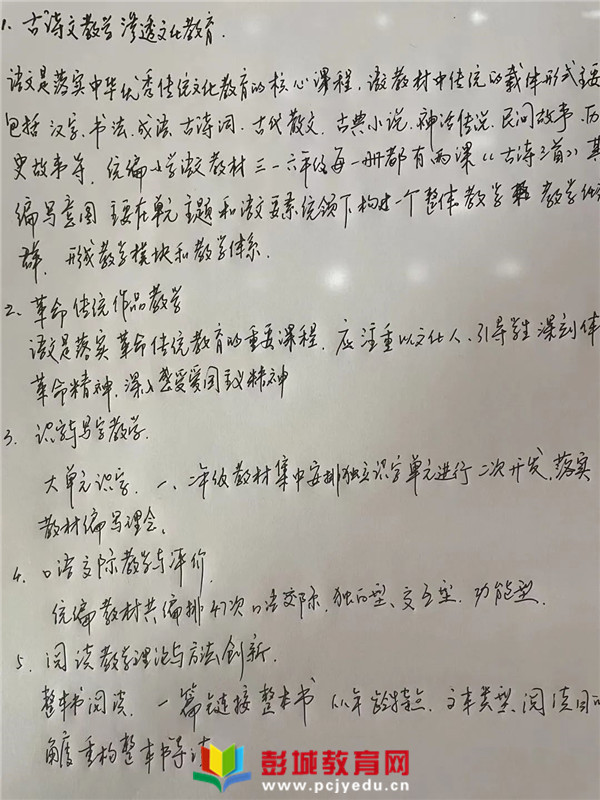 1. 古诗文教学渗透文化教育.
语文是落实中华优秀传统文化教育的核心课程, 语文教材中传统的载体形式主要
包括 汉字、书法、成语、古诗词、古代散文、古典小说、神话传说、民间故事、历
史故事等. 统编小学语文教材 三一六年级每一册都有两课《古诗三首》其
编写意图 主要在单元主题和语文要素统领下构成一个整体教学 教学
群, 形成教学模块和教学体系.
2、革命传统作品教学
语文是落实革命传统教育的重要课程, 应注重以文化人、引导学生深刻体
革命精神, 深入感受爱国主义精神
3. 识字与写字教学.
大单元识字, 一、二年级教材集中安排独立识字单元进行二次开发, 落实
教材编写理念.
4、口语交际教学与评价.
统编教材共编排47次口语交际, 独白型、交互型、功能型.
5、阅读教学理论与方法创新.
整本书阅读, 一篇链接整本书 从年龄特点、文本类型、阅读
角度重构整本书导读
彭城教育网
www.pcjyedu.cn